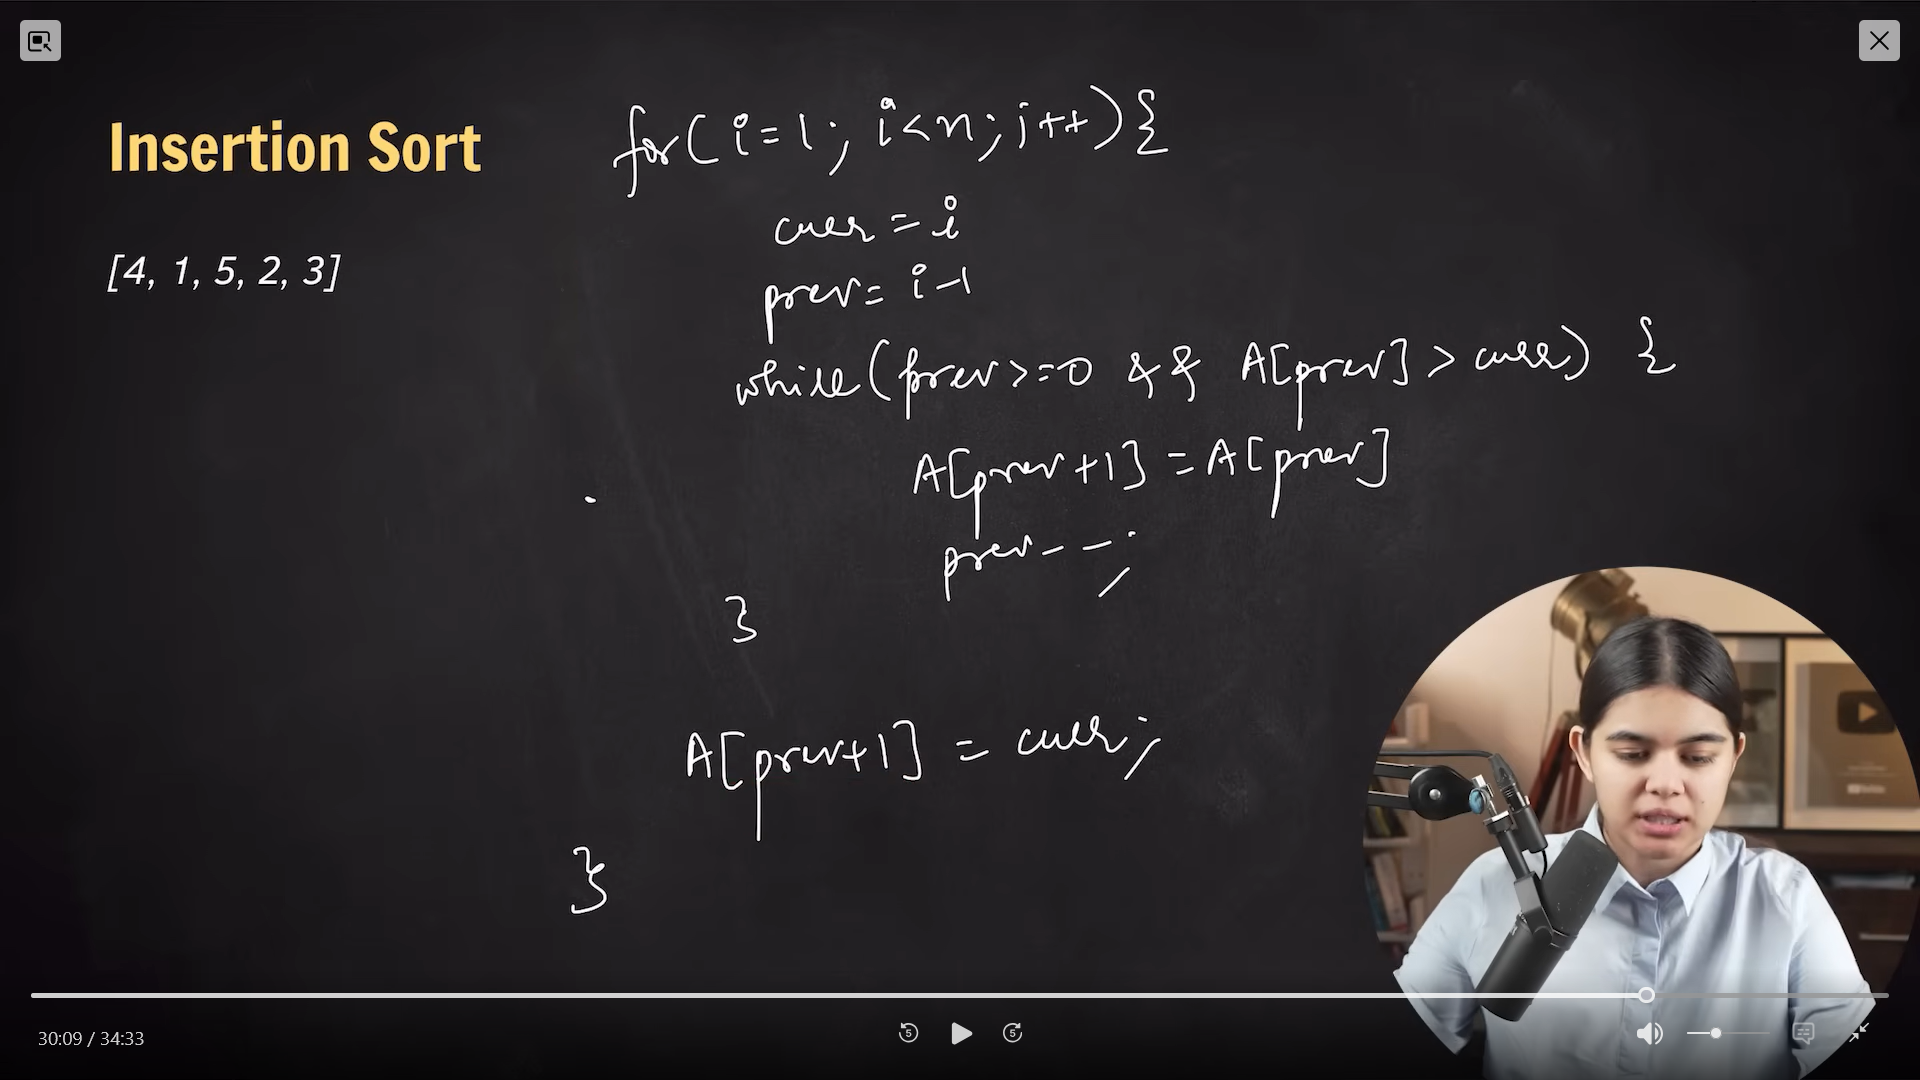 Insertion Sort
[4, 1, 5, 2, 3]
for(i=1; i<n; i++){
curr = i
prev = i-1
while(prev>=0 && A[prev] > curr) {
A[prev+1] = A[prev]
prev--;
}
A[prev+1] = curr;
}
30:09 / 34:33
5
5